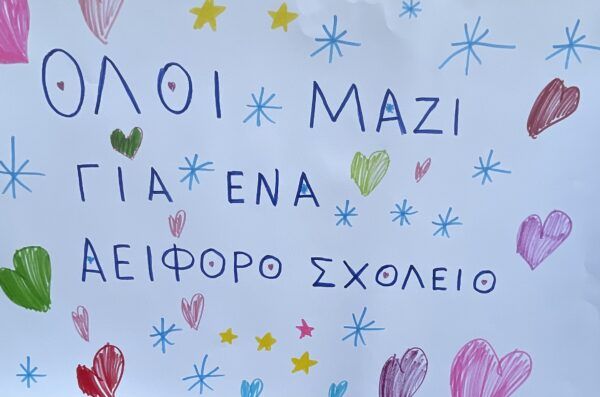 ΟΛΟΙ ΜΑΖΙ
ΓΙΑ ΕΝΑ
ΑΕΙΦΟΡΟ ΣΧΟΛΕΙΟ